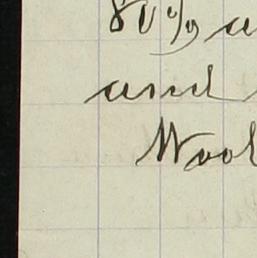 80% a
and
Wool